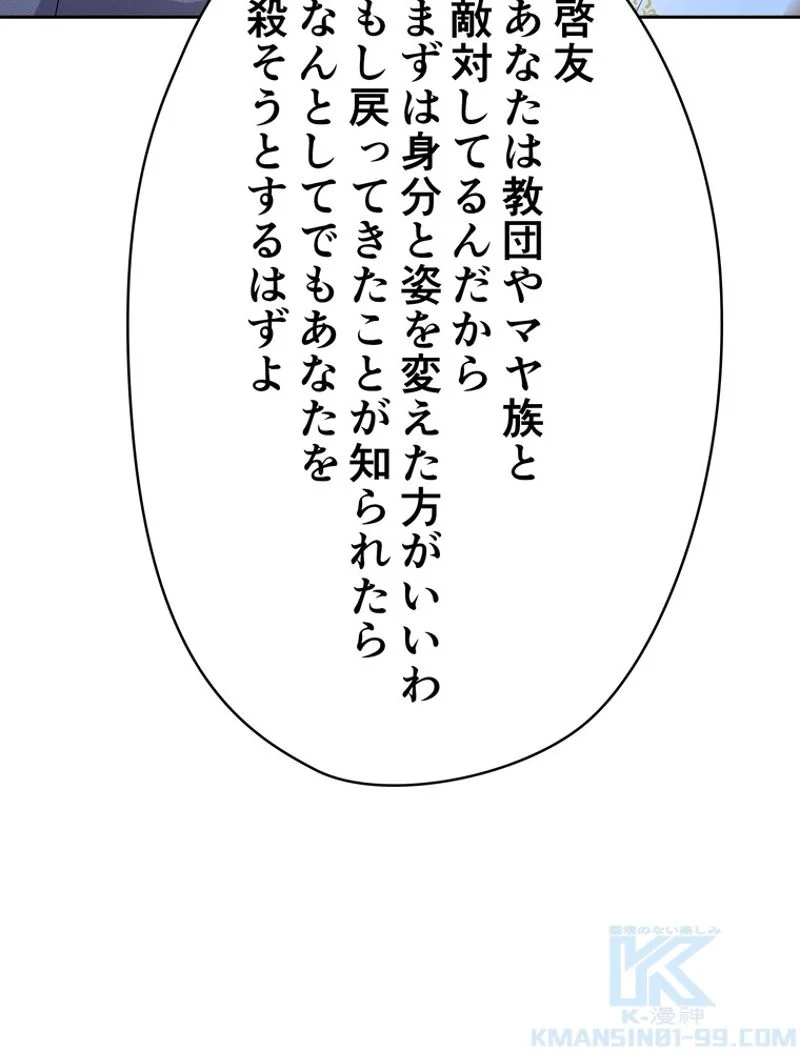 啓友
あなたは教団やマヤ族と
敵対してるんだから
まずは身分と姿を変えた方がいいわ
もし戻ってきたことが知られたら
なんとしてでもあなたを
殺そうとするはずよ
K-漫神
KMANSIN01-99.COM